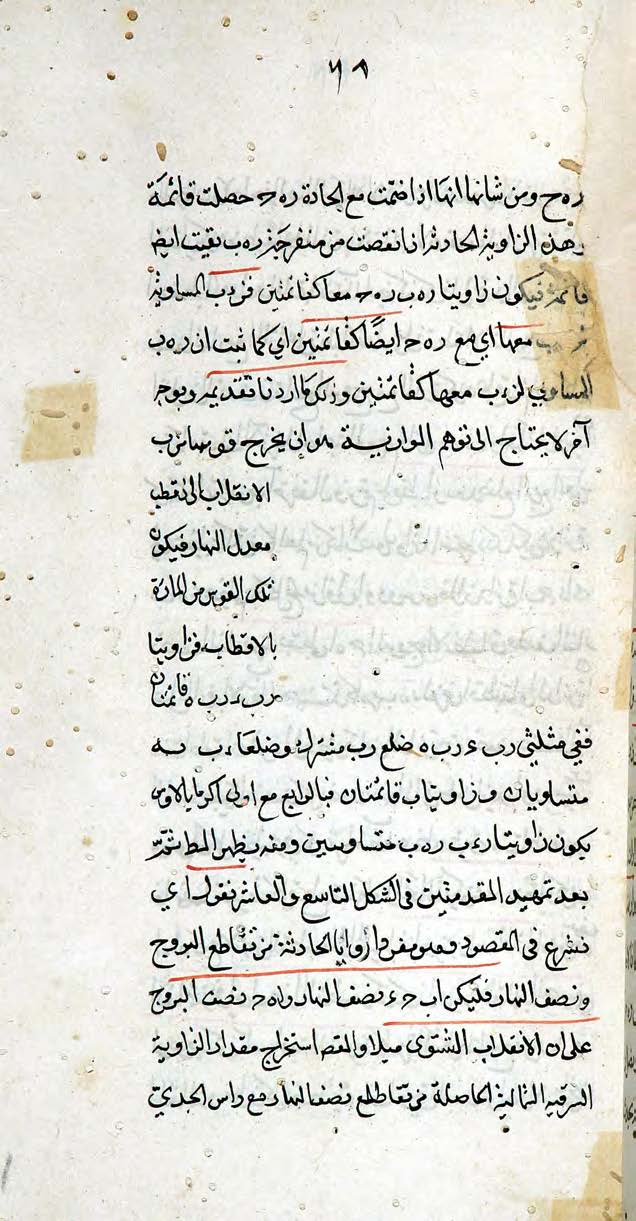 ٦٨
ره ح ومن شانها انها اذا ضمّت مع الحادة ره ح حصلت قائمة
وهذه الزاوية الحادثة اذا نقصت من منفرجة ره ب بقيت ايض
قائمة فيكون زاويتا ره ب ره ح معا كقائمتين فزدب المساوية
معها اي مع ره ح ايضًا كقائمتين اي كما ثبت ان ره ب
المساوي لزءب معها كقائمتين وذلك ما اردنا تقديمه وبوجه
آخر لا يحتاج الى توهم الموازنية هو ان يخرج قوسا من ب
الانقلاب الى قطب
معدل النهار فيكون
تلك القوس من المارة
بالاقطاب فزاويتا
رب ء رب ه قائمتان
ففي مثلثي رب ء رب ه ضلع رب مشترك وضلعا ءب ب ه
متساويان وزاويتا ب قائمتان فبالرابع مع اولى اكر مانالاوس
يكون زاويتا رءب ره ب متساويتين ومنه يظهر المط ثم
بعد تمهيد المقدمتين في الشكل التاسع والعاشر نقول اي
نشرع في المقصود وهو معرفة زوايا الحادثة من تقاطع البروج
ونصف النهار فليكن اب ح ء نصف النهار واه ح نصف البروج
على ان الانقلاب الشتوي ميلا والمقصد استخراج مقدار الزاوية
الشرقية الشمالية الحاصلة من تقاطع نصف النهار مع راس الجدي